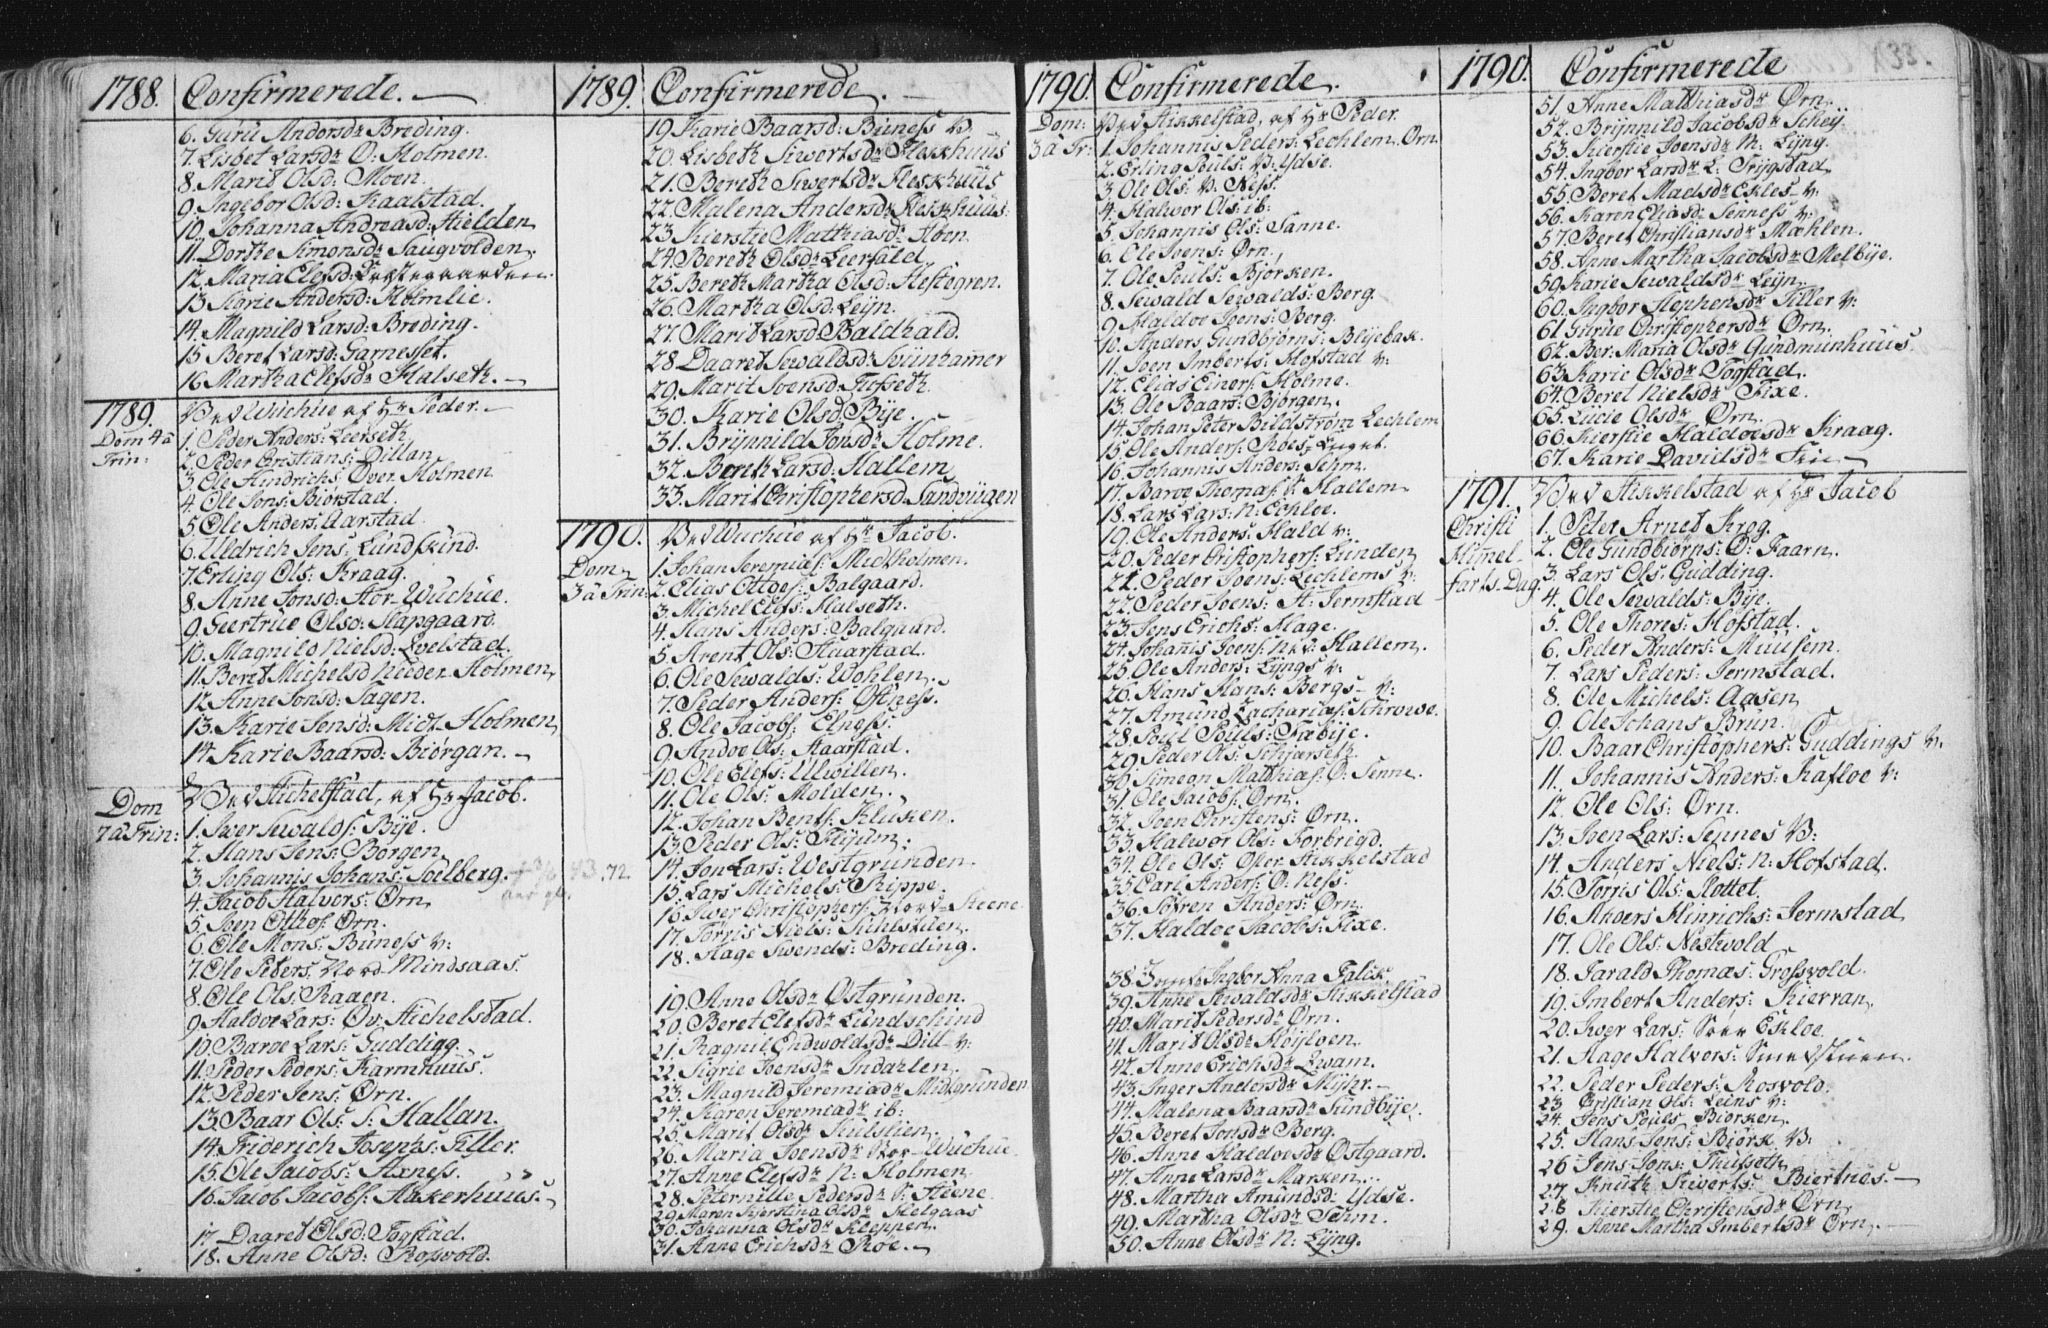 1788. Confirmerede.
6. Guru Andersdr Breding.
7. Lisbet Larsdr O: Holmen.
8. Marit Olsd: Moen.
9. Ingebor Olsd: Kaalstad.
10. Johanna Andreasd: Hielden
11. Dorthe Simonsdr Saugvolden
12. Maria Elefsd:
13. Karie Andersd: Holmlie.
14. Magnild Larsd: Breding.
15. Beret Larsd: Garnesset.
16. Martha Elefsdr Halseth.
1789. Ved Wuchue af Hr Peder.
Dom 4 a Trin:
1. Peder Anders: Leerseth
2. Peder Christians: Dillan
3. Ole Hindrichs Over Holmen
4. Ole Jons: Biorstad.
5. Ole Anders: Aarstad.
6. Uldrich Jens: Lundskind.
7. Erling Ols: Kraag.
8. Anne Jonsd: Stor-Wuchue.
9. Geertrue Olsd: Hapgaard
10. Magnild Nielsd: Lyelstad.
11. Beret Michelsd Neder-Holmen
12. Anne Jonsd: Sagen.
13. Karie Jensd: Midt-Holmen
14. Karie Baarsd: Biörgan.
Dom 7 a Trin:
Ved Stichelstad, af Hr Jacob.
1. Iver Sewalds: Bye.
2. Hans Jens: Borgen
3. Johannis Johans: Soelberg.
4. Jacob Halvors: Ørn
5. Joen Ottos: Ørn.
6. Ole Mons: Buness v:
7. Ole Peders: Nord Mindsaas.
8. Ole Ols: Raaen.
9. Haldoe Lars: Øv: Stichelstad.
10. Baroe Lars: Gudding.
11. Peder Peders: Karmhuus.
12. Peder Jens: Ørn.
13. Baar Ols: S: Hallan.
14. Friderich Josephs: Tiller.
15. Ole Jacobs: Axness.
16. Jacob Jacobs: Aakerhuus.
17. Daaret Olsd: Togstad.
18. Anne Olsd: Rosvold.
1789. Confirmerede.
19. Karie Baarsd: Buness v:
20. Lisbeth Siwertsdr Fleskhuus
21. Bereth Siwertsdr Fleskhuus
22. Malena Andersdr Fleskhuus.
23. Kierstie Matthiasdr Hoen
24. Bereth Olsdr Leerfald.
25. Bereth Martha Olsd: Heftegren.
26. Martha Olsd: Leyn.
27. Marit Larsd: Baldhald.
28. Daaret Sewaldsdr Svunhamer
29. Marit Joensd: Hofseth.
30. Karie Olsd Bye.
31. Brynnild Jonsdr Holme.
32. Bereth Larsd: Hallem
33. Marit Christophersd. Sandvügen
1790. Ved Wuchue af Hr Jacob.
Dom 3 a Trin:
1. Johan Jeremias: Midtholmen.
2. Elias Ottoes: Balgaard.
3. Michel Elefs: Halseth.
4. Hans Anders: Balgaard.
5. Arent Ols: Staarstad.
6. Ole Sewalds: Wohlen
7. Peder Anders: Ostness.
8. Ole Jacobs: Elness.
9. Andoe Ols: Staarstad.
10. Ole Elefs: Ulwillen.
11. Ole Ols: Molden.
12. Johan Bents: Kluken.
13. Peder Ols: Flyum.
14. Jon Lars: Westgrunden
15. Lars Michels: Rippe.
16. Iwer Christophers: Nord-Steene
17. Torris Niels: Suhlstuen.
18. Hage Swends: Breding.
19. Anne Olsdr Østgrunden.
20. Beret Elefsdr Lundschind
21. Ragnil Endwoldsdr Dill v:
22. Sigrie Joensdr Indahlen.
23. Magnild Jeremiadr Midtgrunden
24. Karen Jeremiadr ib:
25. Marit Olsdr Kulslien.
26. Maria Joensdr Stor-Wuchue.
27. Anne Elefsdr N: Holmen
28. Peternille Pedersdr S: Steene.
29. Maren Kierstina Olsdr Helgaas
30. Johanna Olsdr Kleppen.
31. Anne Erichsdr Röe.
1790. Confirmerede.
Dom: 3 a Tr:
Ved Stikkelstad, af Hr Peder.
1. Johannis Peders: Lechlem Ørn
2. Erling Pouls: v: Ydse.
3. Ole Ols: v: Ness.
4. Halwor Ols: ib:
5. Johannis Ols: Sanne.
6. Ole Joens: Ørn
7. Ole Pouls: Bjorken.
8. Sewald Sewalds: Berg.
9. Haldoe Joens: Berg.
10. Anders Gundbjorns: Blyebak.
11. Joen Imberts: Hofstad v:
12. Elias Einers: Holme.
13. Ole Baars: Bjorgen.
14. Johan Peter Bildstrom Lechlem
15. Ole Anders:
16. Johannis Anders: Sehm.
17. Baroe Thomas: S: Hallem
18. Lars Lars: N: Echloe.
19. Ole Anders: Hald v:
20. Peder Christophers: Lunden
21. Peder Joens: Lechlems v:
22. Peder Joens: St: Jermstad
23. Jens Erichs: Hage.
24. Johannis Joens: Ned: Hallem.
25. Ole Anders: Lyngs v:
26. Hans Hans: Bergs v:
27. Amund Zacharias: Schrowe.
28. Poul Pouls: Fæbye.
29. Peder Ols: Schjærseth
30. Simeon Matthias: O: Sinne.
31. Ole Jacobs: Ørn.
32. Joen Christens: Ørn.
33. Halwor Ols: Forbrigd.
34. Ole Ols: Over Stikkelstad
35. Carl Anders: O: Ness.
36. Söfren Anders: Ørn.
37. Haldoe Jacobs: Fixe.
38. Ingbor Anna Falck
39. Anne Sewaldsdr Stikkelstad
40. Marit Pedersdr Ørn.
41. Marit Olsdr Hoyloen.
42. Anne Erichsdr Qwam.
43. Inger Andersdr Myhr.
44. Malena Baarsdr Sundbye.
45. Beret Jonsdr Berg.
46. Anne Haldoesdr Østgaard.
47. Anne Larsdr Marken.
48. Martha Amundsd: Ydse.
49. Martha Olsdr Sehm.
50. Anne Olsdr N: Lyng.
1790. Confirmerede 133.
51. Anne Matthiasdr Ørn.
52. Brynnild Jacobsdr Schey.
53. Kierstie Joensdr N: Lyng.
54. Ingbor Larsdr L: Trygstad
55. Beret Madsdr Ekles v:
56. Karen Eliasdr Senness v:
57. Beret Christiansdr Mæhlen.
58. Anne Martha Jacobsdr Melbye.
59. Karie Sewaldsdr Leyn.
60. Ingbor Stephensdr Tiller v:
61. Gurue Christophersdr Ørn.
62. Ber: Maria Olsdr Gundmunhuus.
63. Karie Olsdr Togstad.
64. Beret Nielsdr Fixe.
65. Lucie Olsdr Ørn
66. Kierstie Haldoesdr Kraag.
67. Karie Davidsdr
1791. Ved Stikkelstad af Hr Jacob
Christi Himmelfarts-Dag.
1. Peder Arnet Krog.
2. Ole Gundbiörns: O: Faarn.
3. Lars Ols: Gudding.
4. Ole Sewalds: Bye.
5. Ole Thores: Hofstad.
6. Peder Anders: Muusem.
7. Lars Peders: Jermstad.
8. Ole Michels: Aasen
9. Ole Johans Brun.
10. Baar Christophers: Guddings v:
11. Johannis Anders: Kafloe v:
12. Ole Ols: Ørn.
13. Joen Lars: Sennes v:
14. Anders Niels: N: Hofstad.
15. Torris Ols: Slottet.
16. Anders Hinrichs: Jermstad
17. Ole Ols: Nestvold
18. Harald Thomas: Grosvold.
19. Imbert Anders: Kierran
20. Iwer Lars: Echloe.
21. Aage Halvors: Smedstuen.
22. Peder Peders: Rosvold.
23. Cristian Ols: Leins v:
24. Jens Pouls: Biorken
25. Hans Jens: Biörk v:
26. Jens Jons: Thufseth
27. Knuth Siwerts: Biertnes.
28. Kierstie Christensdr Ørn
29. Anne Martha Imbertsdr Ørn.